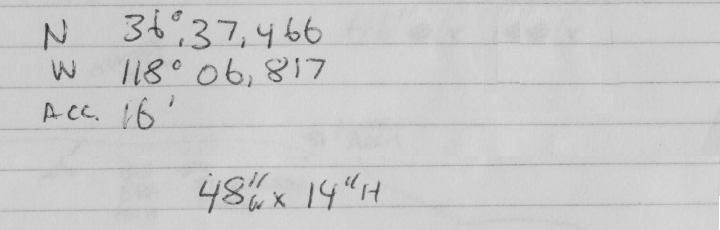 N 36°,37,466
W 118° 06,817
ACC. 16'
48"W x 14"H